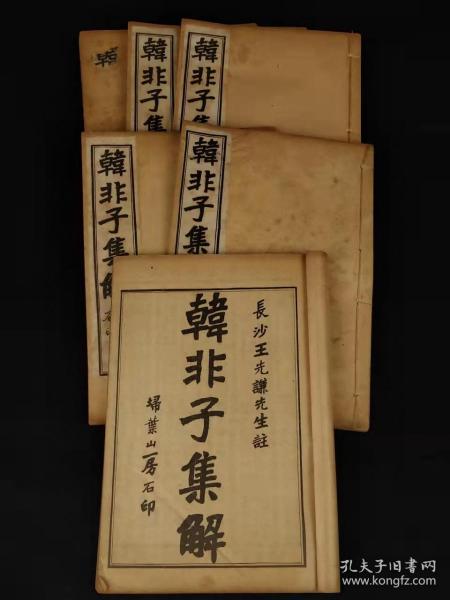 韓
韓非子集
韓非子集
韓非子集解
石印
韓非子集
長沙王先謙先生註
韓非子集解
埽葉山房石印
孔夫子旧书网
www.kongfz.com